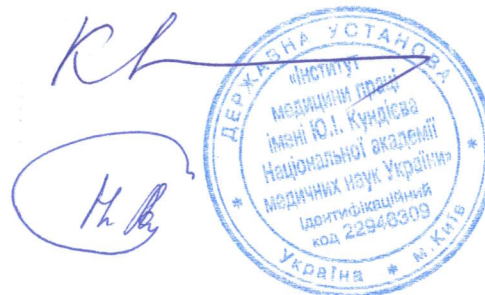 ДЕРЖАВНА УСТАНОВА
«Інститут
медицини праці
імені Ю.І. Кундієва
Національної академії
медичних наук України»
Ідентифікаційний
код 22946309
* Україна * м. Київ *